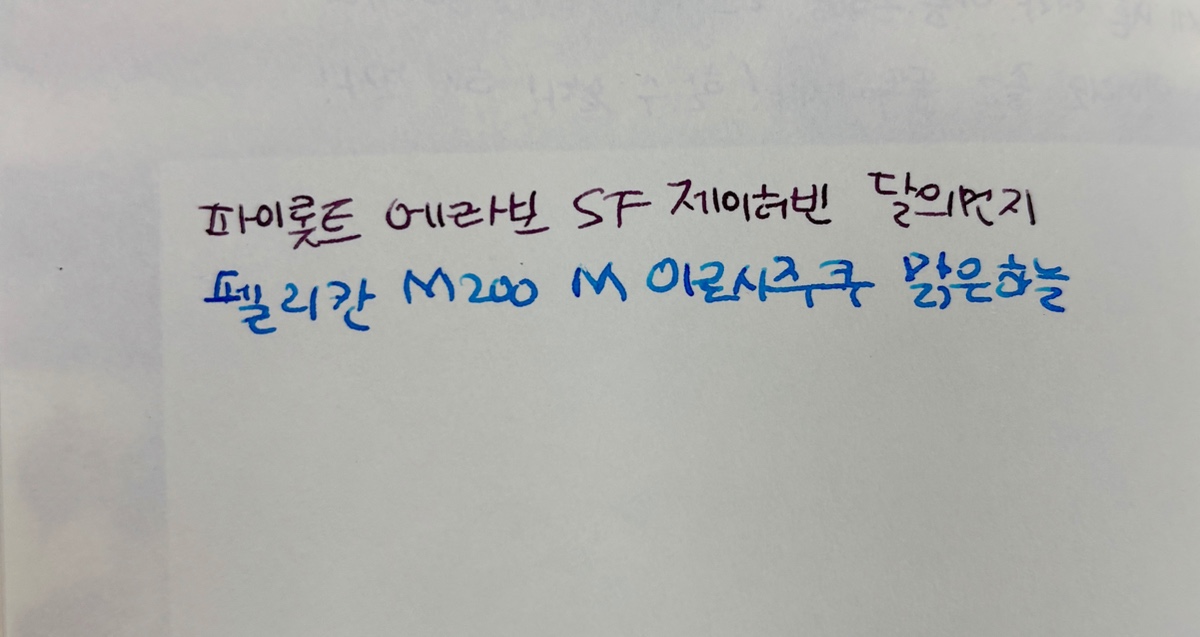 파이롯트 에라보 SF 제이허빈 달의먼지
펠리칸 M200 M 이로시주쿠 맑은하늘